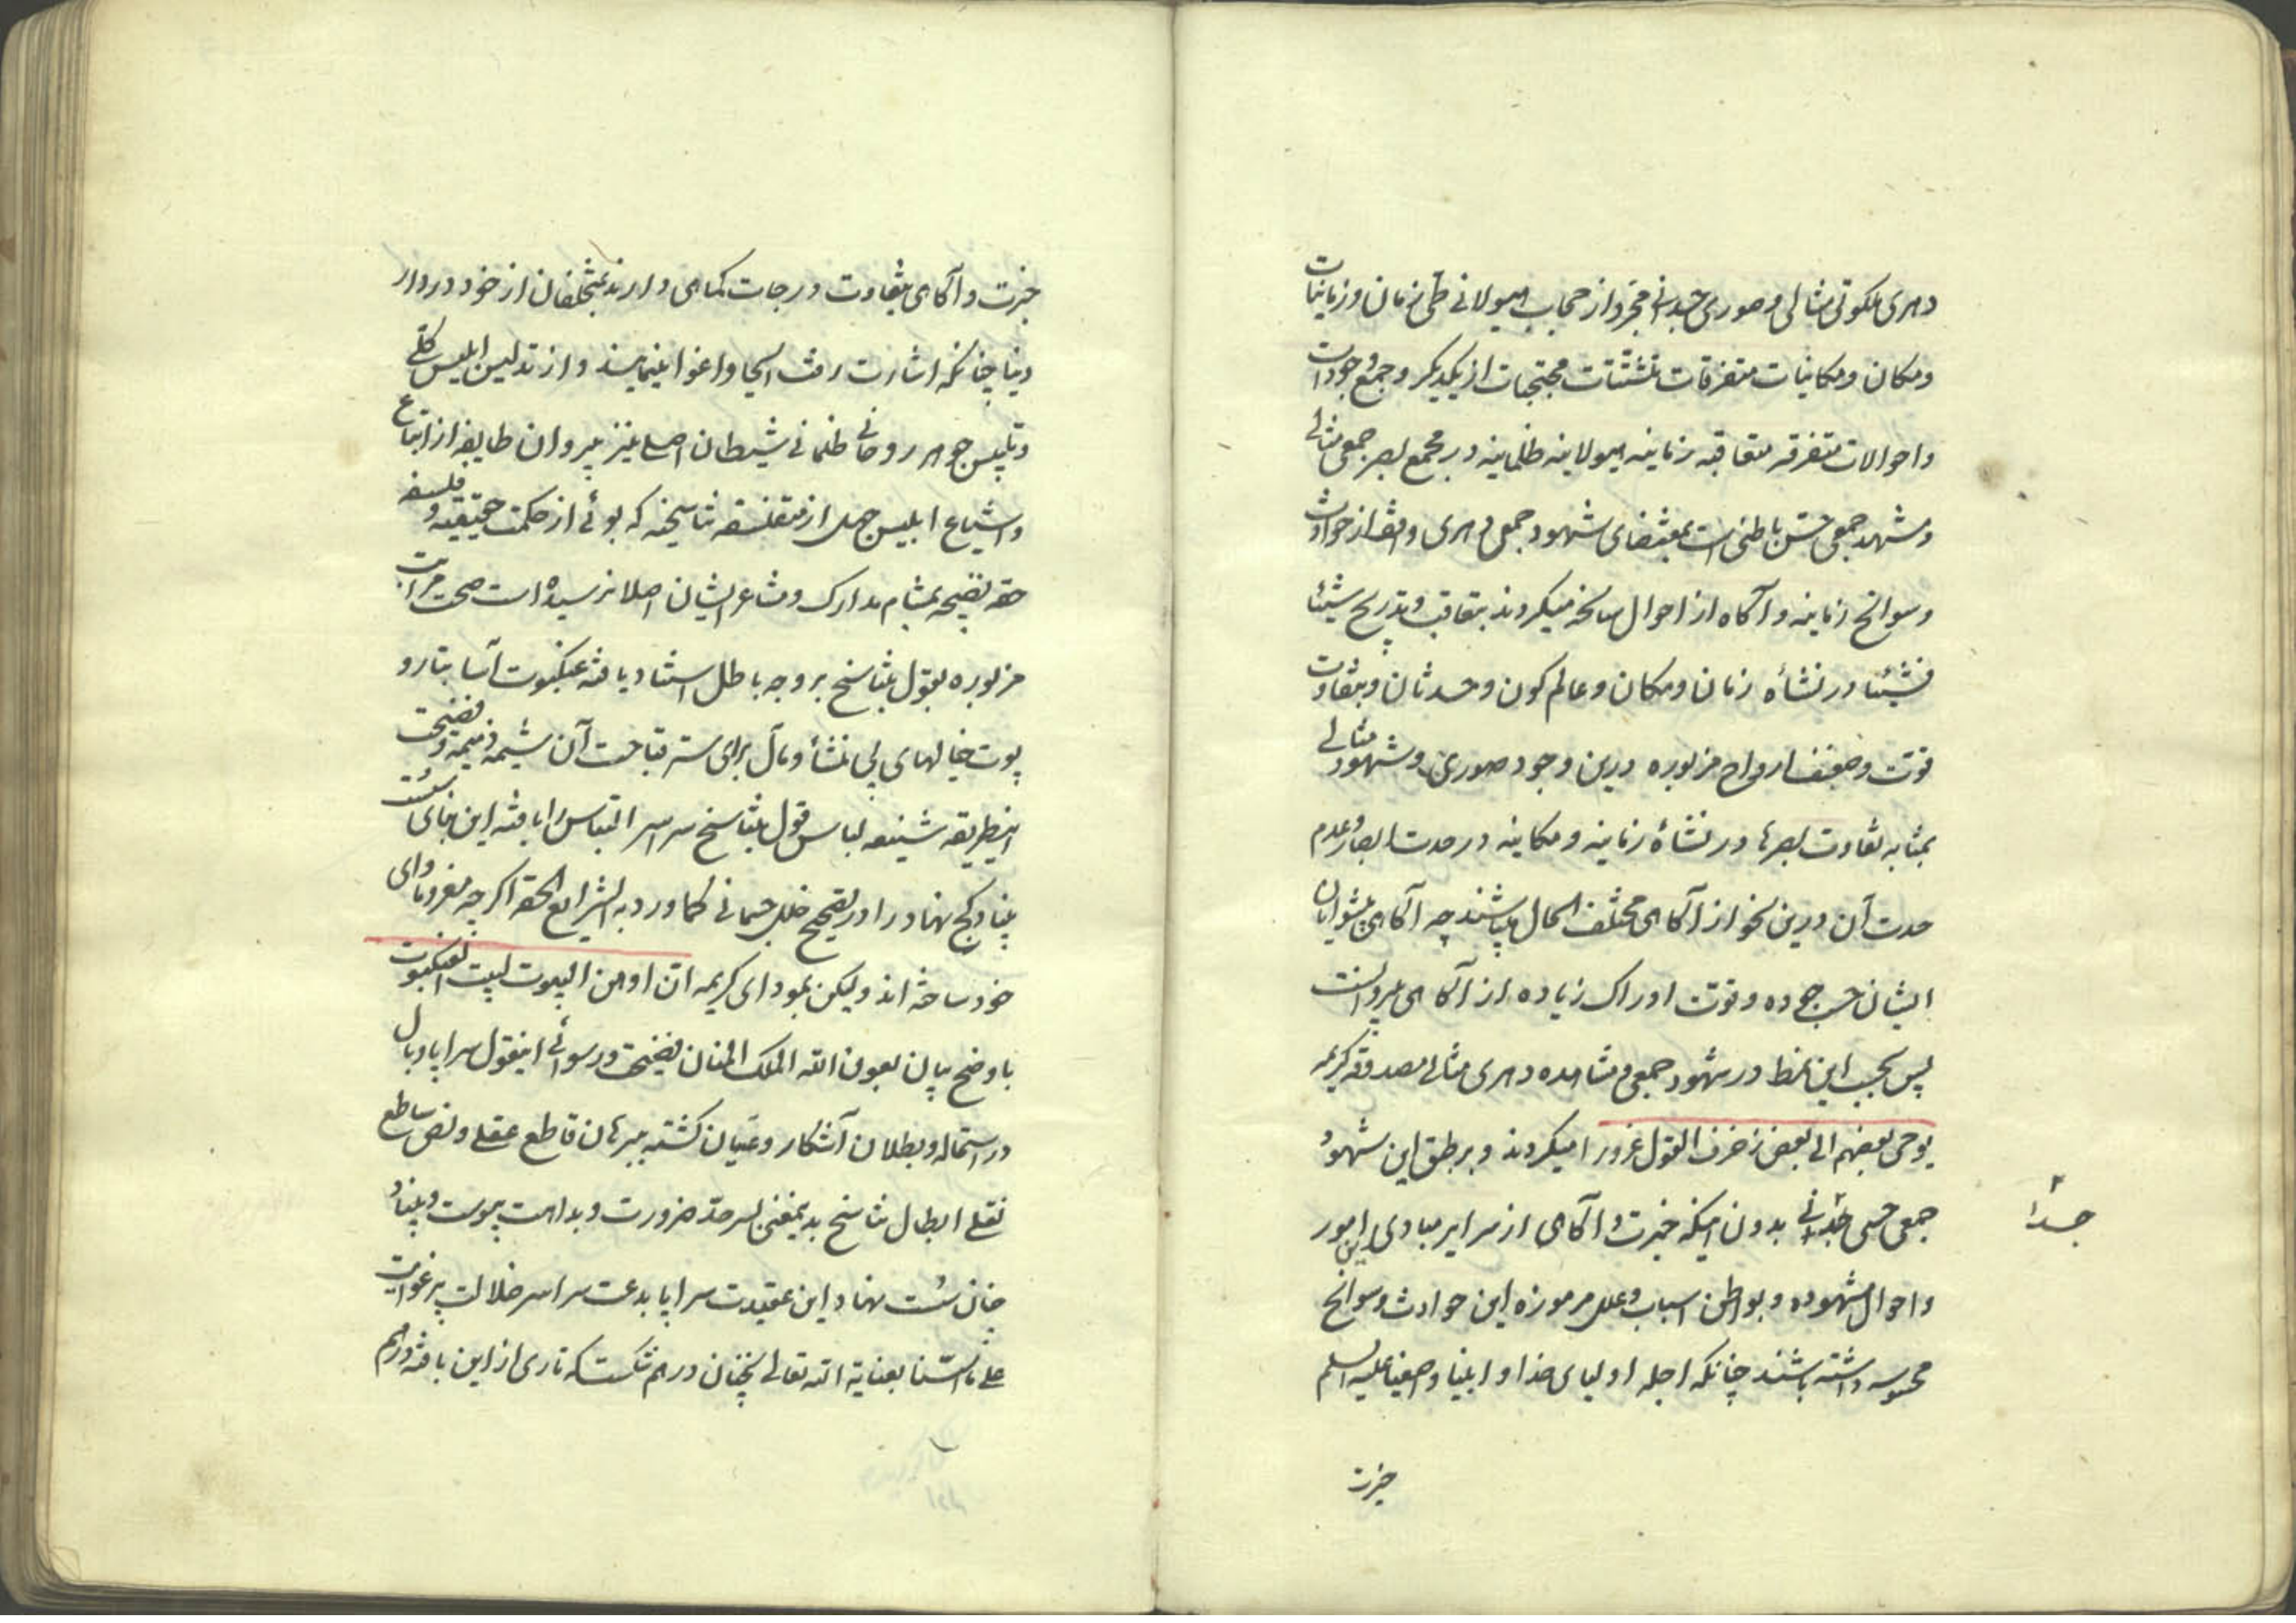 دهری ملکوتی مثالی و صوری مجرد از حجاب هیولانی طی زمان و زمانیات
و مکان و مکانیات متفرقات متشتتات محتجبات از یکدیگر و جمع وجودات
و احوالات متفرقه متعاقبه زمانیه هیولانیه ظلمانیه در مجمع بصر جمعی مثالی
و مشهد جمعی حس باطنی است بمقتضای شهود جمعی دهری واقف از حوادث
و سوانح زمانیه و آگاه از احوال سانحه میکردند بتعاقب و تدریج شیئا
فشیئا در نشأه زمان و مکان و عالم کون و حدثان و بتفاوت
قوت و ضعف ارواح مزبوره درین وجود صوری و شهود مثالی
بمثابه تفاوت بصرها در نشأه زمانیه و مکانیه در حدت ابصار و عدم
حدت آن درین نحو از آگاهی مختلف الحال میباشند چه آگاهی پیشوایان
ایشان حسب جوده و قوت ادراک زیاده از آگاهی پیروانست
پس بحسب این نمط در شهود جمعی و مشاهده دهری مثالی مصدوقه کریمه
یوحی بعضهم الی بعض زخرف القول غرورا میکردند و بر طبق این شهود
جمعی حسی بدون اینکه خبرت و آگاهی از سرایر مبادی این امور
جدا
و احوال مشهوده و بواطن اسباب و علل مرموزه این حوادث و سوانح
محسوسه داشته باشند چنانکه اجله اولیای خدا و انبیا و اصفیا علیهم السلم
خبرت
خبرت و آگاهی بتفاوت درجات کماهی دارند متخلفان از خود در دار
دنیا چنانکه اشارت رفت الحا و اغوا مینمایند و از تدلیس ابلیس کلی
و تلبیس جوهر روحانی ظلمانی شیطان اصلی نیز پیروان طایفه از اتباع
و اشیاع ابلیس جهل از متفلسفه تناسخیه که بوئی از حکمت حقیقیه و فلسفه
حقه نضیجه بمشام مدارک و مشاعر ایشان اصلا نرسیده است صحت مراتب
مزبوره بقول بتناسخ بر وجه باطل استناد یافته عنکبوت آسا بتار و
پوت خیالهای بی منشأ و مآل برای ستر قباحت آن شیمه ذمیمه و فضیحت
اینطریقه شنیعه لباس قول بتناسخ سراسر التباس را بافته این بنای سست
بنیاد کج نهاد را در تصحیح خلل جسمانی کما ورد به الشرایع الحقه اگر چه مفر و مأوای
خود ساخته اند ولیکن بمودای کریمه ان اوهن البیوت لبیت العنکبوت
باوضح بیان بعون الله الملک المنان فضیحت و رسوائی اینقول سراپا وبال
در استحاله و بطلان آشکار و عیان گشته ببرهان قاطع عقلی و نص ساطع
نقلی ابطال تناسخ بدینمعنی بسرحد ضرورت و بداهت پیوست و بنیاد
خان سست نهاد این عقیدت سراپا بدعت سراسر ضلالت پر غوایت
علی ما اسسنا بعنایة الله تعالی بحنان درهم شکست که تاری از این بافته درهم